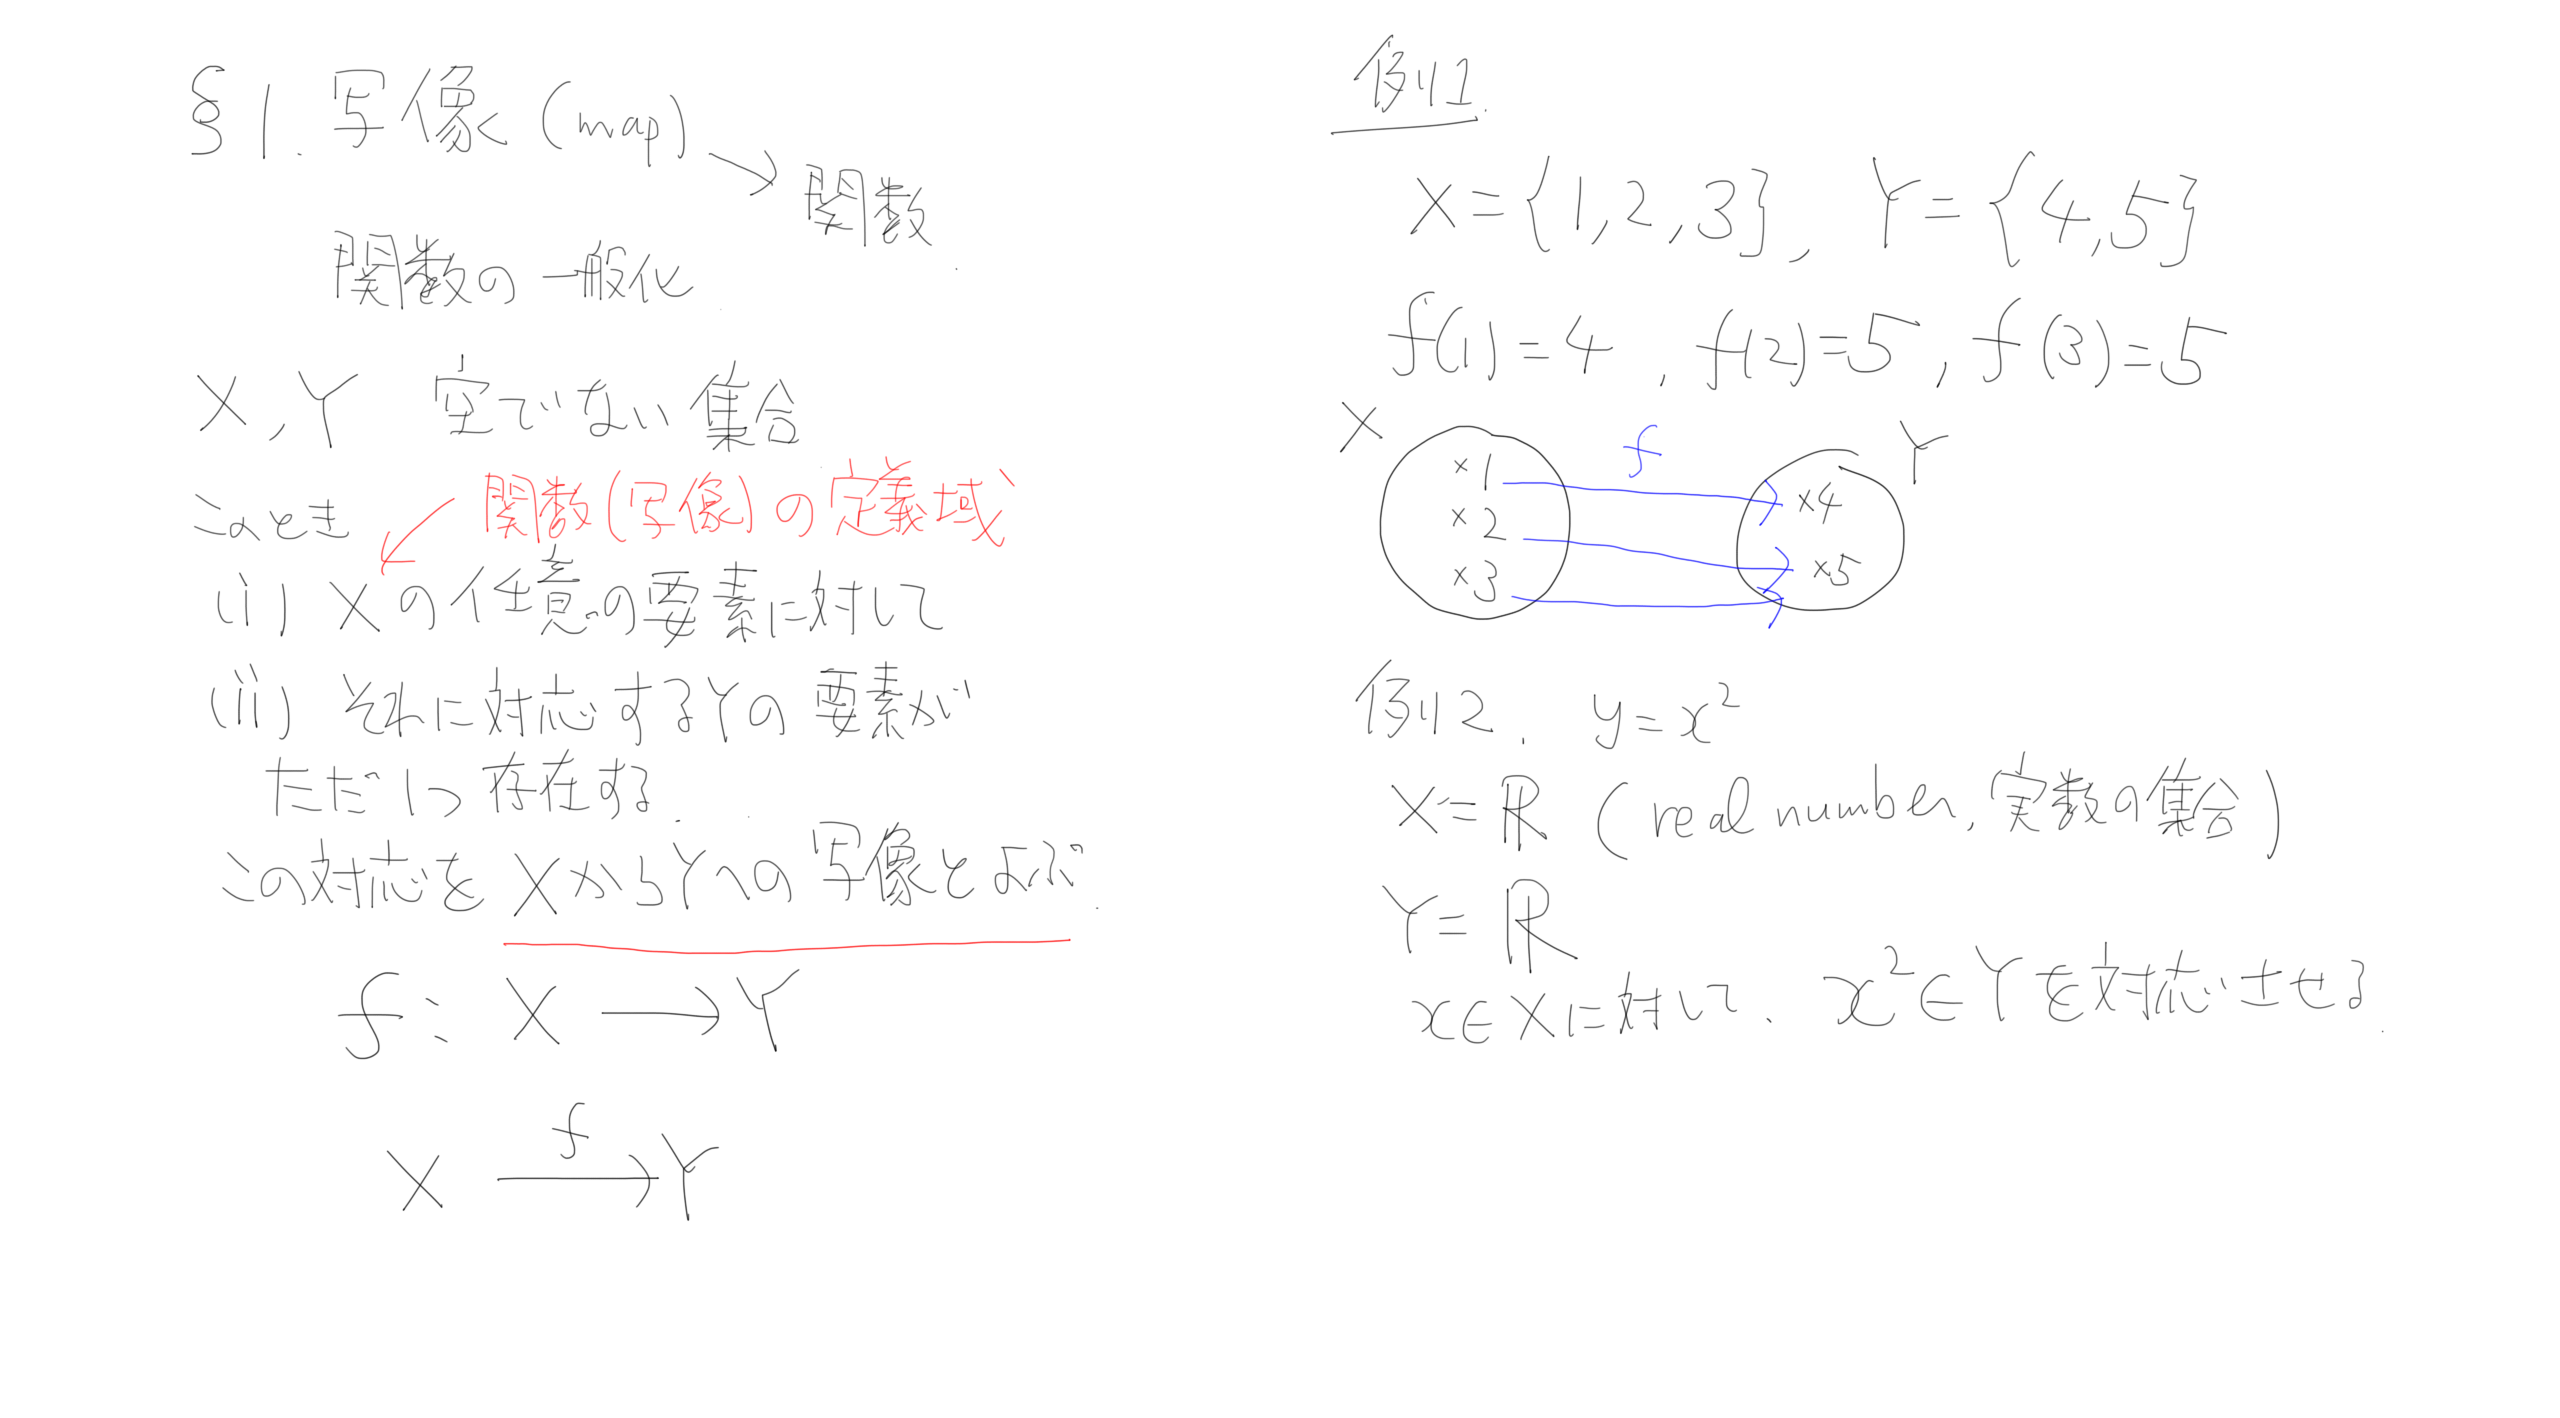 §1. 写像 (map)
→ 関数
関数の一般化
X, Y 空でない集合
このとき
関数(写像)の定義域
(i) Xの任意の要素に対して
(ii) それに対応するYの要素が
ただ1つ存在する.
この対応をXからYへの写像とよぶ.
f: X → Y
f
X → Y
例1.
X = {1, 2, 3}, Y = {4, 5}
f(1) = 4, f(2) = 5, f(3) = 5
X f Y
×1 ×4
×2 ×5
×3
例2. y = x²
X = ℝ (real number, 実数の集合)
Y = ℝ
x ∈ X に対して、x² ∈ Y を対応させる.